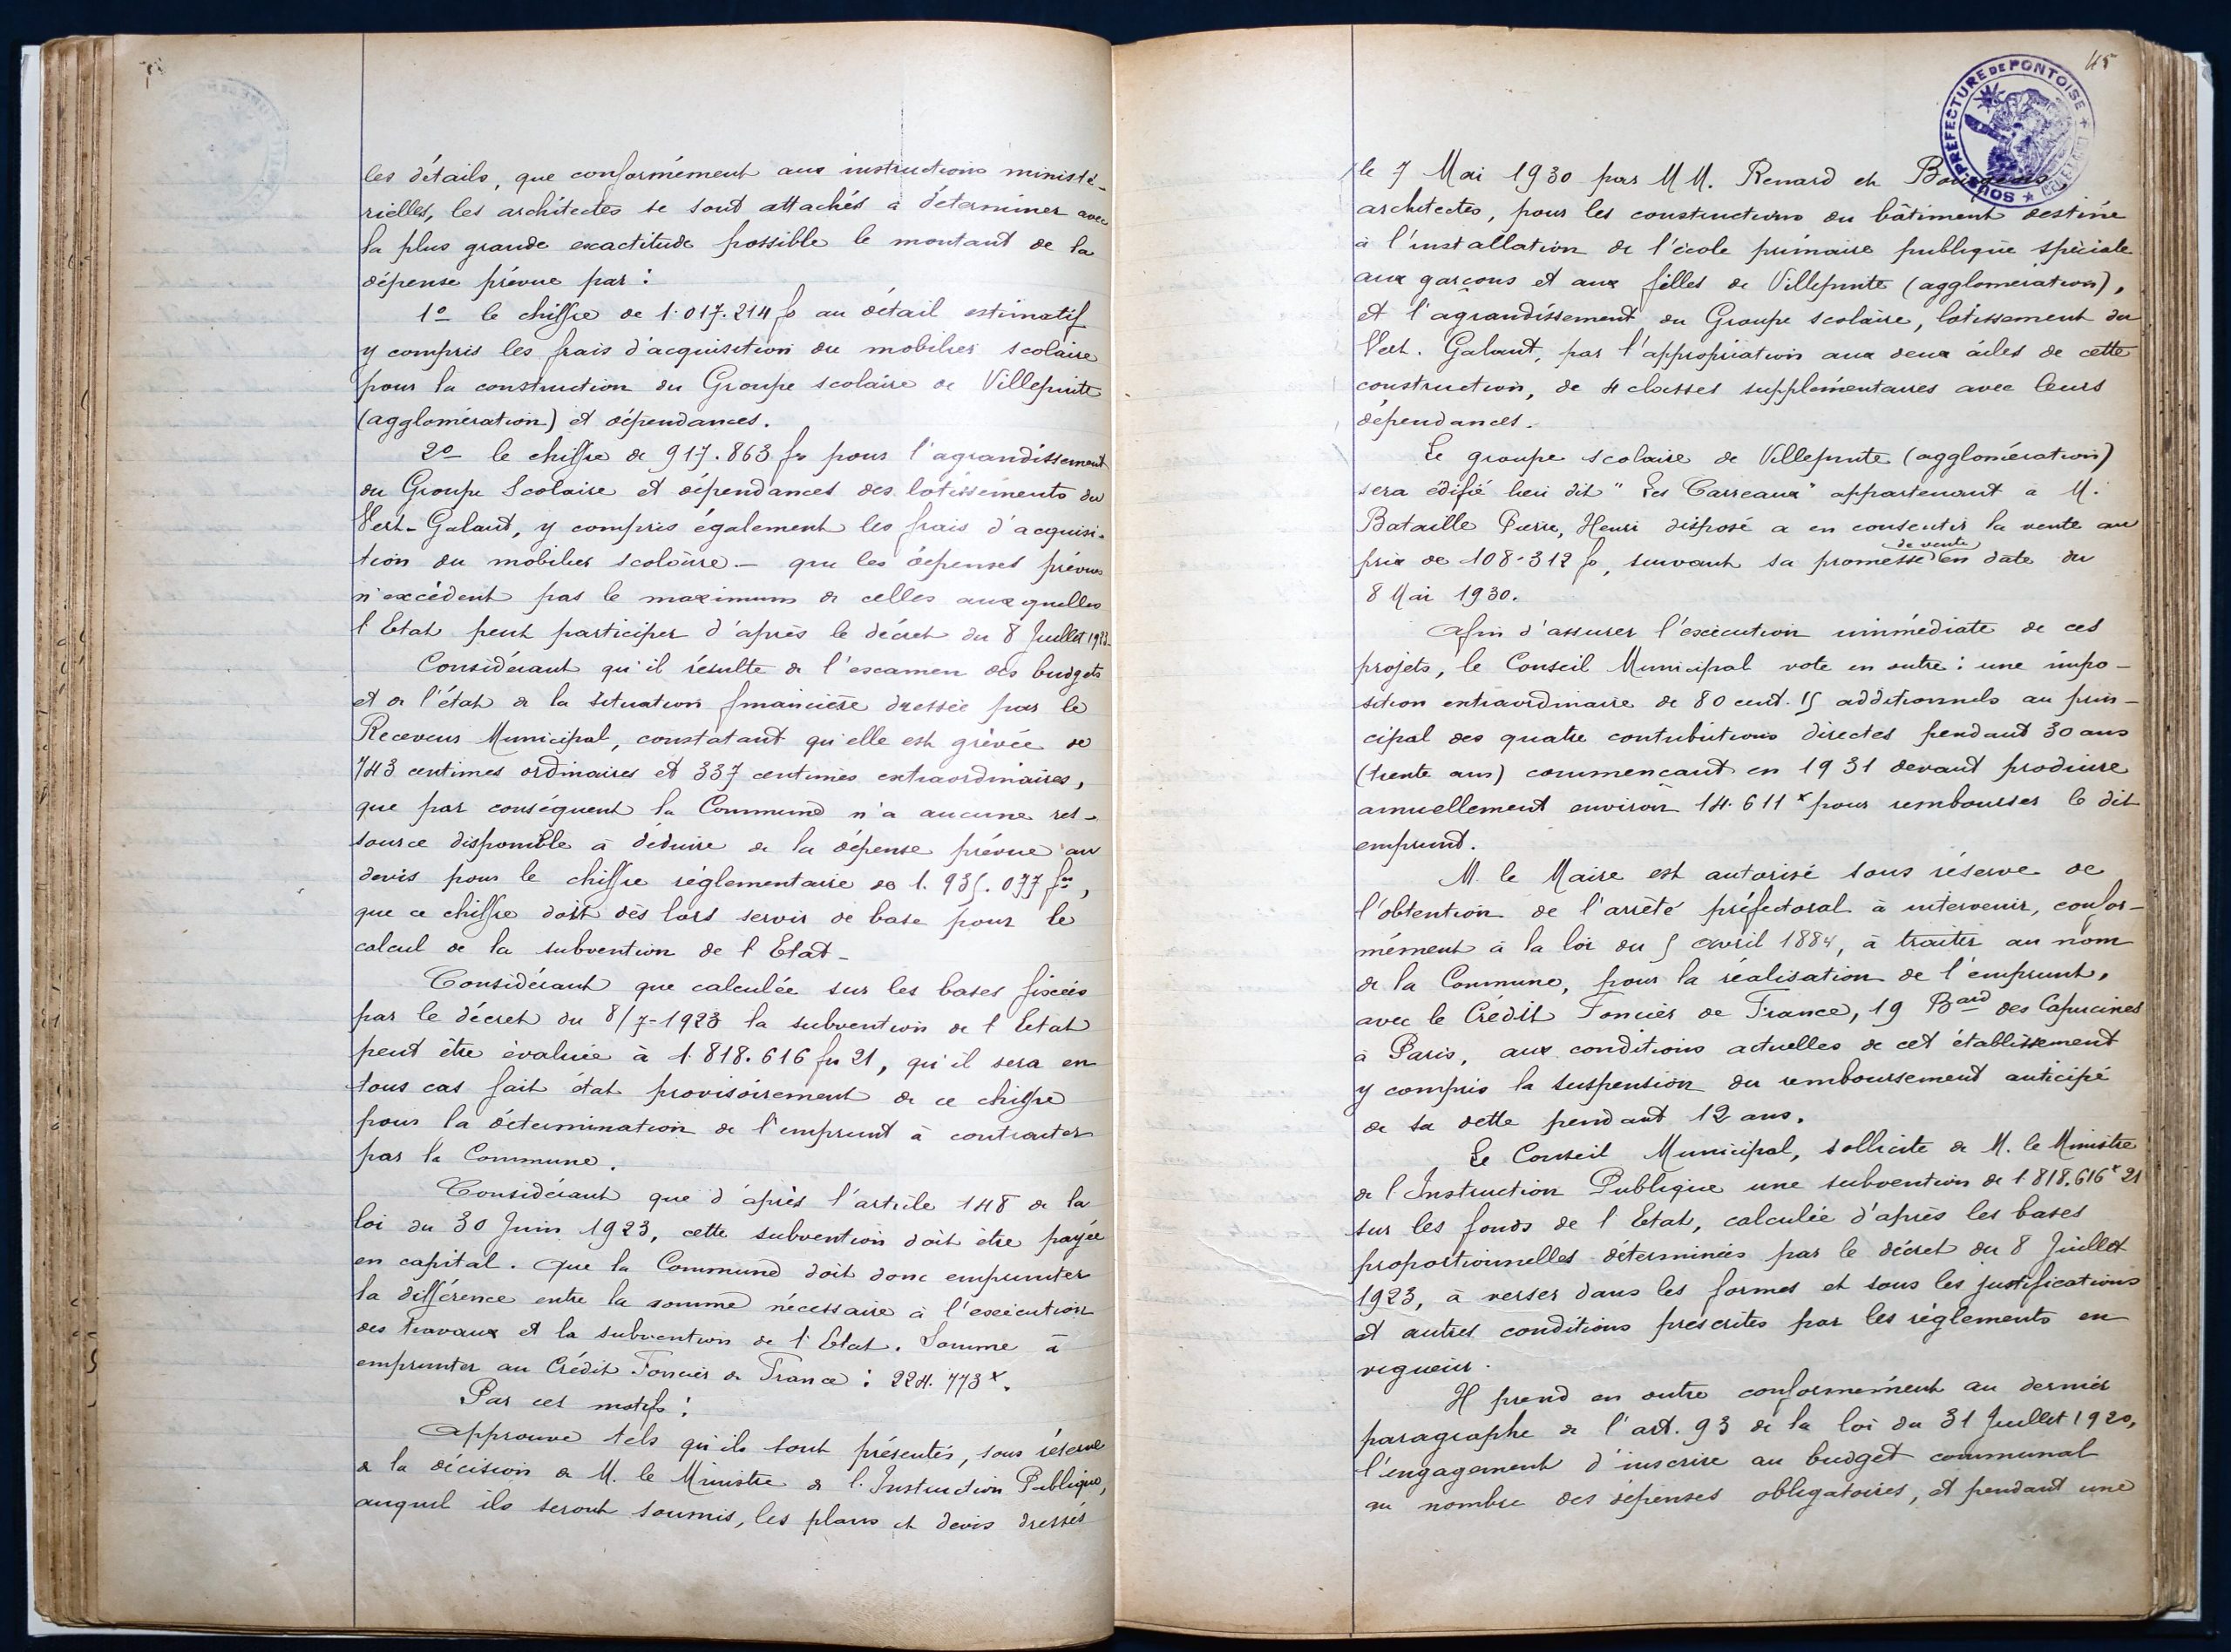 les détails, que conformément aux instructions ministé-
rielles, les architectes se sont attachés à déterminer avec
la plus grande exactitude possible le montant de la
dépense prévue par :
1º le chiffre de 1.017.214 fs au détail estimatif
y compris les frais d'acquisition du mobilier scolaire
pour la construction du Groupe scolaire de Villepinte
(agglomération) et dépendances.
2º le chiffre de 917.863 frs pour l'agrandissement
du Groupe Scolaire et dépendances des lotissements du
Vert-Galant, y compris également les frais d'acquisi-
tion du mobilier scolaire - que les dépenses prévues
n'excèdent pas le maximum de celles auxquelles
l'Etat peut participer d'après le décret du 8 Juillet 1923-
Considérant qu'il résulte de l'examen des budgets
et de l'état de la situation financière dressée par le
Receveur Municipal, constatant qu'elle est grévée de
743 centimes ordinaires et 337 centimes extraordinaires,
que par conséquent la Commune n'a aucune res-
source disponible à déduire de la dépense prévue au
devis pour le chiffre réglementaire de 1.935.077 frs,
que ce chiffre doit dès lors servir de base pour le
calcul de la subvention de l'Etat-
Considérant que calculée sur les bases fixées
par le décret du 8/7-1923 la subvention de l'Etat
peut être évaluée à 1.818.616 frs 21, qu'il sera en
tous cas fait état provisoirement de ce chiffre
pour la détermination de l'emprunt à contracter
par la Commune.
Considérant que d'après l'article 148 de la
loi du 30 Juin 1923, cette subvention doit être payée
en capital. Que la Commune doit donc emprunter
la différence entre la somme nécessaire à l'exécution
des travaux et la subvention de l'Etat. Somme à
emprunter au Crédit Foncier de France : 224.773 x.
Par ces motifs :
Approuve tels qu'ils sont présentés, sous réserve
de la décision de M. le Ministre de l'Instruction Publique,
auquel ils seront soumis, les plans et devis dressés
45
SOUS-PREFECTURE DE PONTOISE
le 7 Mai 1930 par MM. Renard et
architectes, pour les constructions du bâtiment destiné
à l'installation de l'école primaire publique spéciale
aux garçons et aux filles de Villepinte (agglomération),
et l'agrandissement du Groupe scolaire, lotissement du
Vert. Galant, par l'appropriation aux deux ailes de cette
construction, de 4 classes supplémentaires avec leurs
dépendances.
Le groupe scolaire de Villepinte (agglomération)
sera édifié lieu dit "Les Carreaux" appartenant à M.
Bataille Pierre, Henri disposé a en consentir la vente au
prix de 108.312 fs, suivant sa promesse de vente en date du
8 Mai 1930.
Afin d'assurer l'exécution immédiate de ces
projets, le Conseil Municipal vote en outre : une impo-
sition extraordinaire de 80 cent. 15 additionnels au prin-
cipal des quatre contributions directes pendant 30 ans
(trente ans) commencant en 1931 devant produire
annuellement environ 14.611 x pour rembourser le dit
emprunt.
M. le Maire est autorisé sous réserve de
l'obtention de l'arrêté préfectoral à intervenir, confor-
mément à la loi du 5 avril 1884, à traiter au nom
de la Commune, pour la réalisation de l'emprunt,
avec le Crédit Foncier de France, 19 Bard des Capucines
à Paris, aux conditions actuelles de cet établissement
y compris la suspension du remboursement anticipé
de sa dette pendant 12 ans.
Le Conseil Municipal, sollicite de M. le Ministre
de l'Instruction Publique une subvention de 1 818.616 x 21
sur les fonds de l'Etat, calculée d'après les bases
proportionnelles déterminées par le décret du 8 Juillet
1923, à verser dans les formes et sous les justifications
et autres conditions prescrites par les réglements en
vigueur.
Il prend en outre conformément au dernier
paragraphe de l'art. 93 de la loi du 31 Juillet 1920,
l'engagement d'inscrire au budget communal
au nombre des dépenses obligatoires, et pendant une